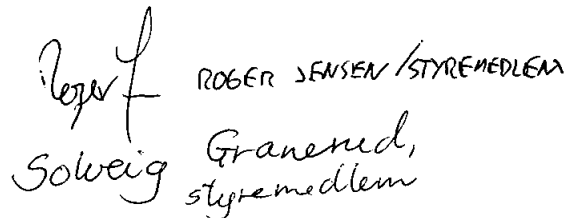 Roger J ROGER JENSEN/STYREMEDLEM
Solveig Granerud,
styremedlem